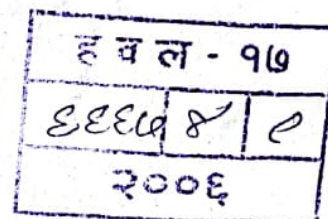 ह व ल - १७
६६६७ ४ १
२००६